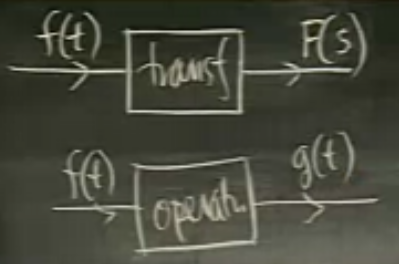 f(t) transf F(s)
f(t) operator g(t)